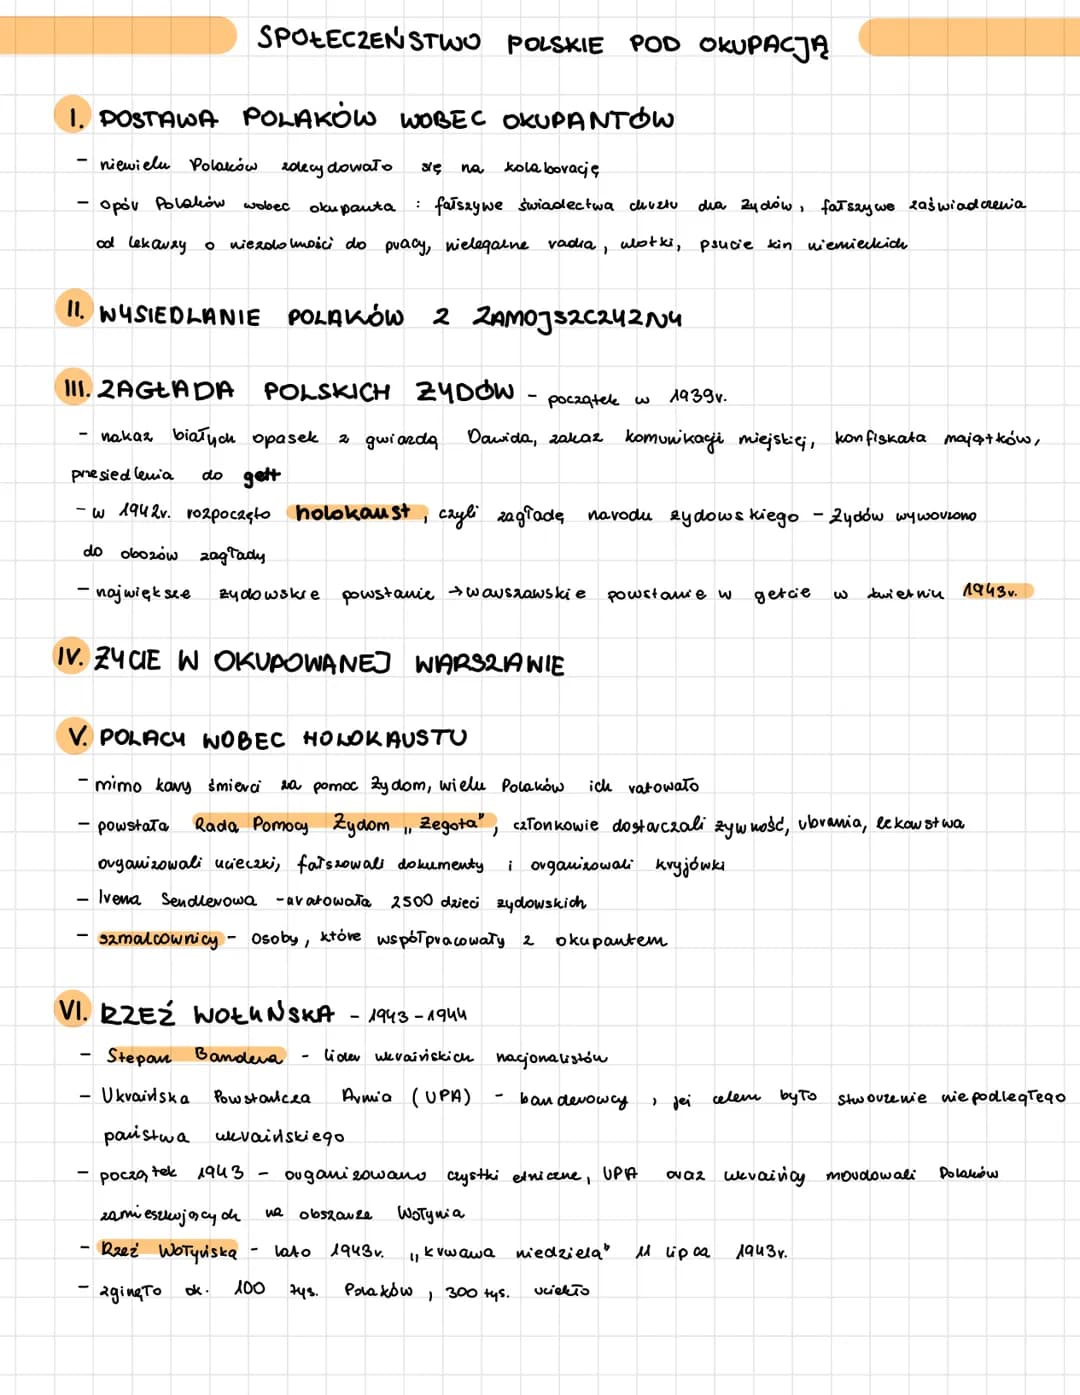 SPOŁECZEŃSTWO POLSKIE POD OKUPACJĄ
I. POSTAWA POLAKÓW WOBEC OKUPANTÓW
- niewielu Polaków zdecydowało się na kolaborację
- opór Polaków wobec okupanta : fałszywe świadectwa chrztu dla Żydów, fałszywe zaświadczenia
od lekarzy o niezdolności do pracy, nielegalne radia, ulotki, psucie kin niemieckich
II. WYSIEDLANIE POLAKÓW Z ZAMOJSZCZYZNY
III. ZAGŁADA POLSKICH ŻYDÓW - początek w 1939r.
- nakaz białych opasek z gwiazdą Dawida, zakaz komunikacji miejskiej, konfiskata majątków,
przesiedlenia do gett
- w 1942r. rozpoczęto holokaust, czyli zagładę narodu żydowskiego - Żydów wywożono
do obozów zagłady
- największe żydowskie powstanie → warszawskie powstanie w getcie w kwietniu 1943r.
IV. ŻYCIE W OKUPOWANEJ WARSZAWIE
V. POLACY WOBEC HOLOKAUSTU
- mimo kary śmierci za pomoc Żydom, wielu Polaków ich ratowało
- powstała Rada Pomocy Żydom „Żegota", członkowie dostarczali żywność, ubrania, lekarstwa
organizowali ucieczki, fałszowali dokumenty i organizowali kryjówki
- Irena Sendlerowa - uratowała 2500 dzieci żydowskich
- szmalcownicy - osoby, które współpracowały z okupantem
VI. RZEŹ WOŁYŃSKA - 1943-1944
- Stepan Bandera - lider ukraińskich nacjonalistów
- Ukraińska Powstańcza Armia (UPA) - banderowcy, jej celem było stworzenie niepodległego
państwa ukraińskiego
- początek 1943 - organizowano czystki etniczne, UPA oraz ukraińcy mordowali Polaków
zamieszkujących na obszarze Wołynia
- Rzeź Wołyńska - lato 1943r. „krwawa niedziela" 11 lipca 1943r.
- zginęło ok. 100 tys. Polaków, 300 tys. uciekło